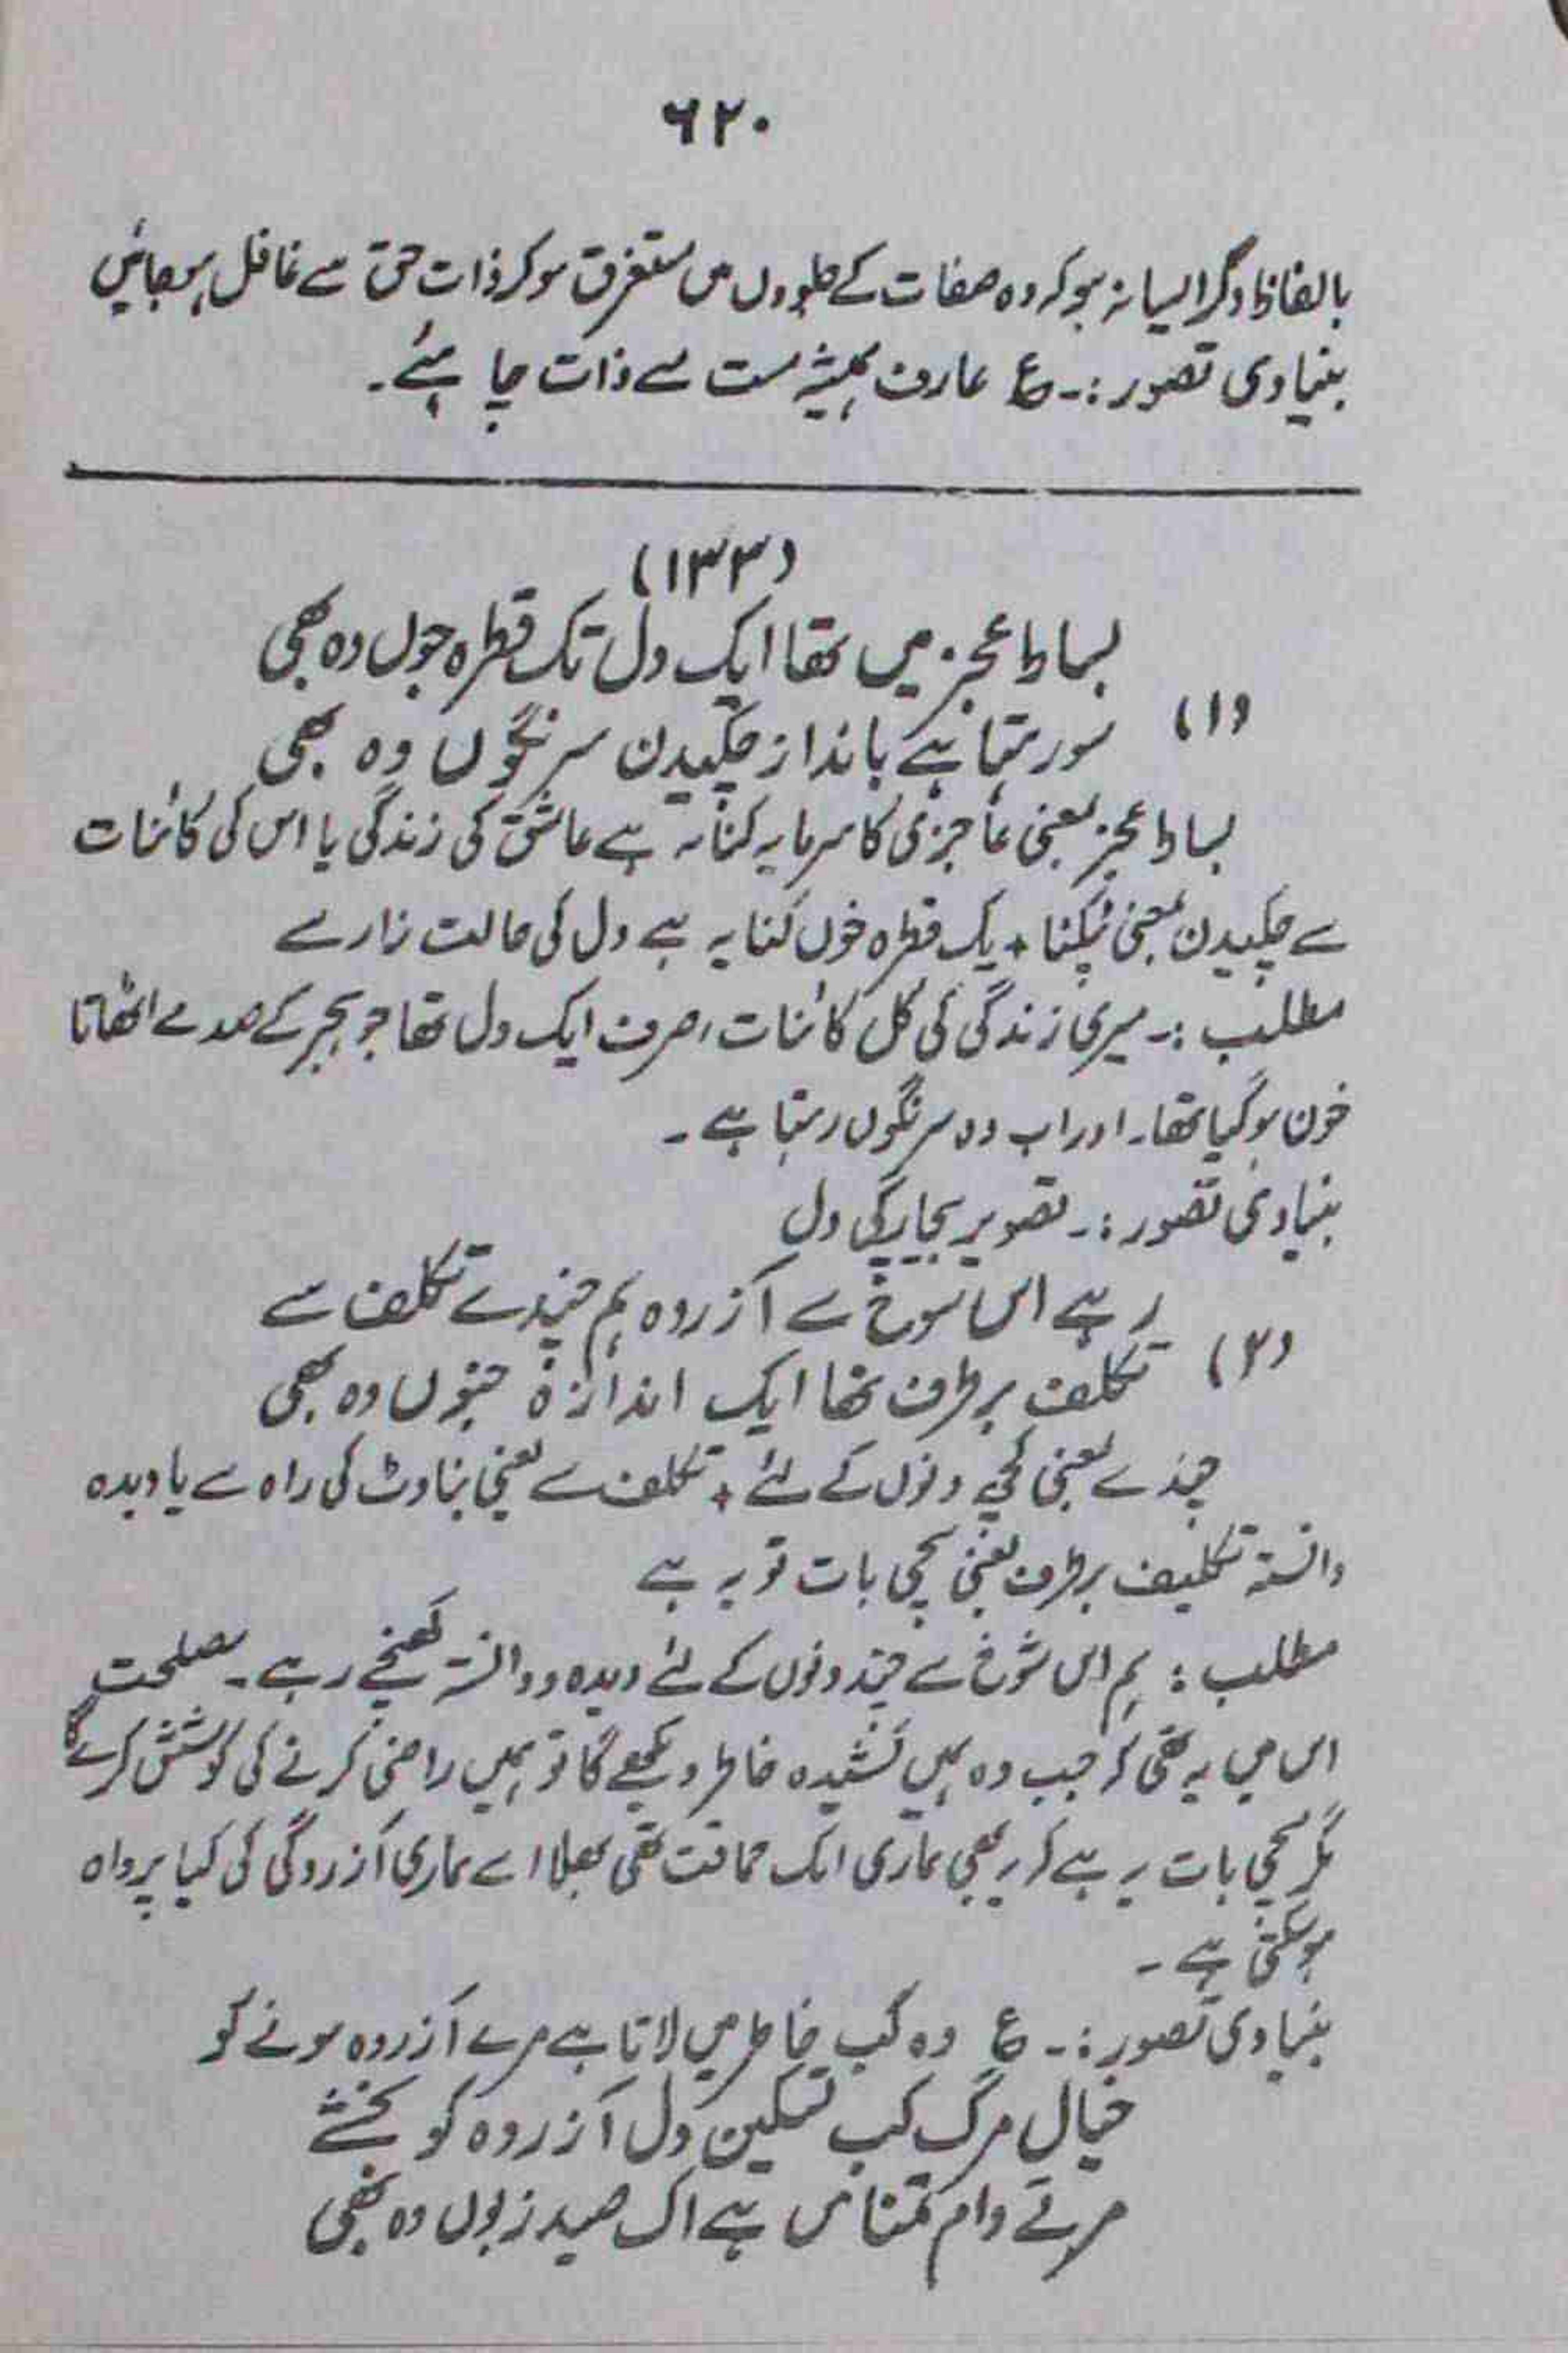 ۶۲۰
بالفاظ دگر ایسا نہ ہو کہ وہ صفات کے جلووں میں مستغرق ہو کر ذات حق سے غافل ہوجائیں
بنیادی تصور :۔ ع عارف ہمیشہ مست مے ذات چاہئے۔
(۱۳۳)
بساط عجز میں تھا ایک دل یک قطرہ خوں وہ بھی
(۱) سو رہتا ہے بانداز چکیدن سرنگوں وہ بھی
بساط عجز یعنی عاجزی کا سرمایہ کنایہ ہے عاشق کی زندگی یا اس کی کائنات
سے چکیدن بمعنی ٹپکنا + یک قطرہ خوں کنایہ ہے دل کی حالت زار سے
مطلب :۔ میری زندگی کی کل کائنات، صرف ایک دل تھا جو ہجر کے صدمے اٹھاتا
خون ہوگیا تھا۔ اور اب وہ سرنگوں رہتا ہے ۔
بنیادی تصور :۔ تصویر بیچارگی دل
رہے اس شوخ سے آزردہ ہم چندے تکلف سے
(۲) تکلف برطرف تھا ایک اندازہ جنوں وہ بھی
چندے یعنی کچھ دنوں کے لئے + تکلف سے یعنی بناوٹ کی راہ سے یا دیدہ
دانستہ تکلیف برطرف یعنی سچی بات تو یہ ہے
مطلب : ہم اس شوخ سے چند دنوں کے لئے دیدہ و دانستہ کھنچے رہے ۔ مصلحت
اس میں یہ تھی کہ جب وہ ہمیں کشیدہ خاطر دیکھے گا تو ہمیں راضی کرنے کی کوشش کرے گا
مگر سچی بات یہ ہے کہ یہ بھی ہماری ایک حماقت تھی بھلا اسے ہماری آزردگی کی کیا پرواہ
ہوسکتی ہے ۔
بنیادی تصور :۔ ع وہ کب خاطر میں لاتا ہے مرے آزردہ ہونے کو
خیال مرگ کب تسکین دل آزردہ کو بخشے
مرے دام تمنا میں ہے اک صید زبوں وہ بھی